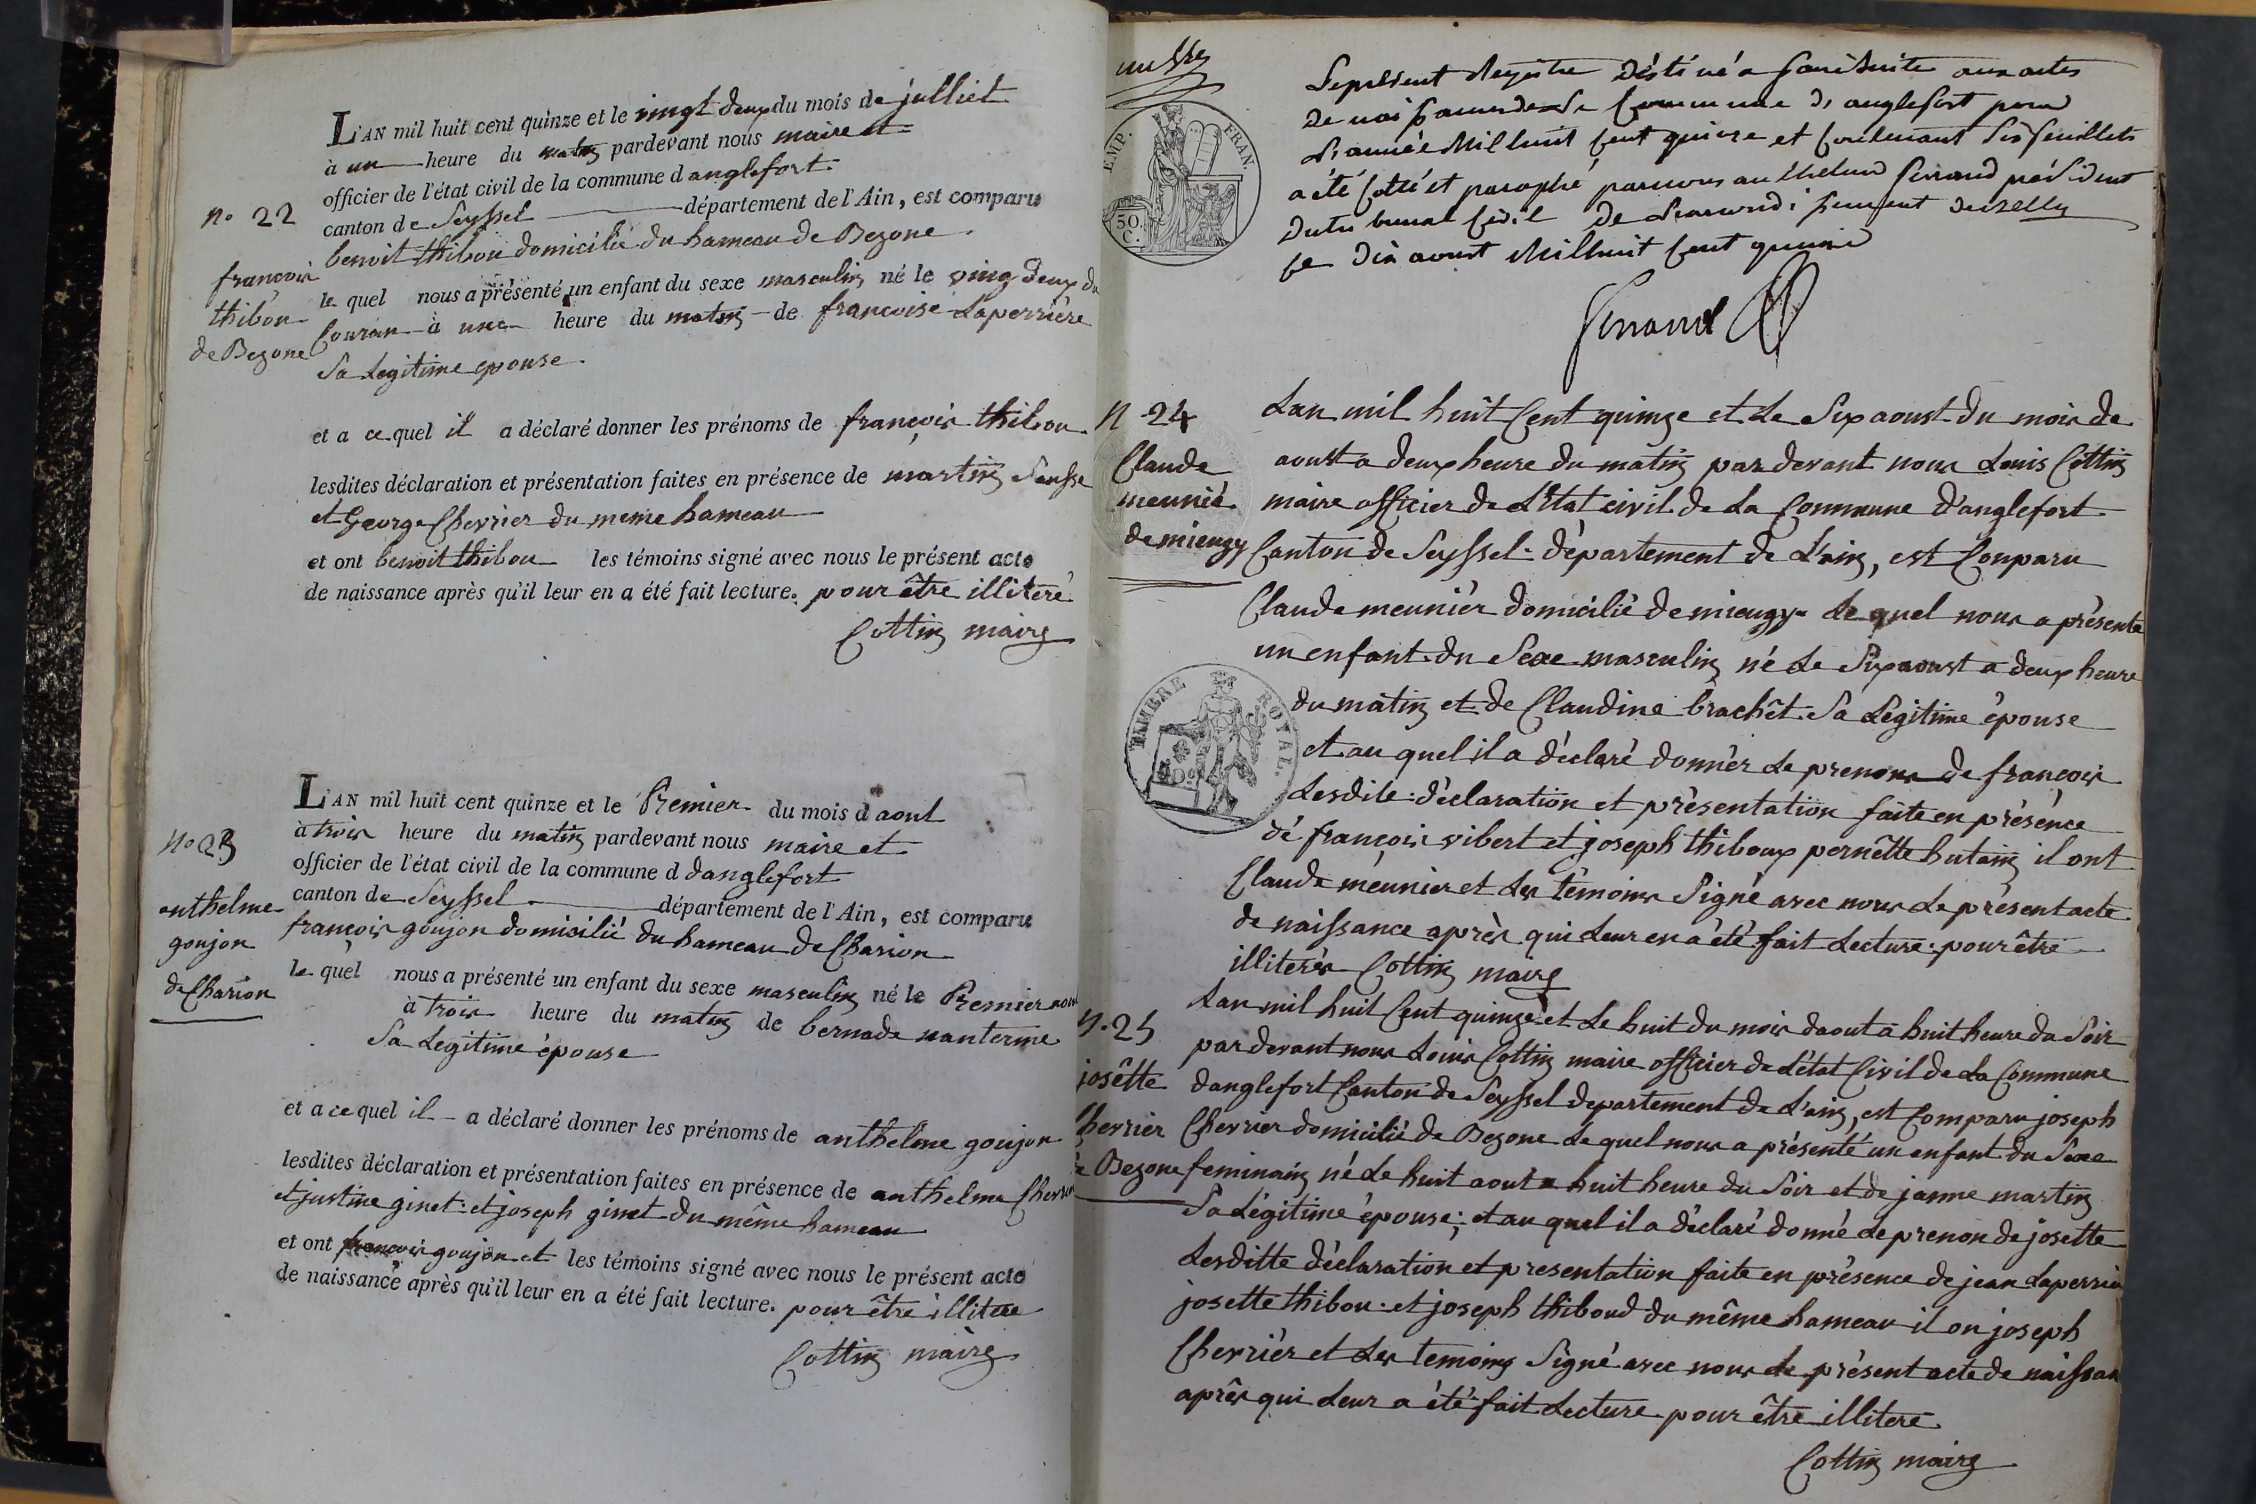 L'AN mil huit cent quinze et le vingt deux du mois de julliet
à un heure du matin pardevant nous maire et
officier de l'état civil de la commune d anglefort
canton de Seyssel département de l'Ain, est comparu
benoit thibou domicilié du hameau de Bezone
le quel nous a présenté un enfant du sexe masculin né le ving deux du
Couran à une heure du matin de francoise Laperriére
Sa Legitime epouse
n° 22
françois
thibou
de Bezone
et a ce quel il a déclaré donner les prénoms de françois thibou
lesdites déclaration et présentation faites en présence de martin
et George Chevrier du meme hameau
et ont benoit thibou les témoins signé avec nous le présent acte
de naissance après qu'il leur en a été fait lecture. pour être illiteré
Cottin maire
L'AN mil huit cent quinze et le Premier du mois d aout
à trois heure du matin pardevant nous maire et
officier de l'état civil de la commune d danglefort
canton de Seyssel département de l'Ain, est comparu
françois goujon domicilié du hameau de Charion
le quel nous a présenté un enfant du sexe masculin né le Premier
à trois heure du matin de bernade nanterme
Sa Legitime épouse
N° 23
anthelme
goujon
de Charion
et a ce quel il a déclaré donner les prénoms de anthelme goujon
lesdites déclaration et présentation faites en présence de anthelme
et justine ginet et joseph ginet du même hameau
et ont françois goujon et les témoins signé avec nous le présent acte
de naissance après qu'il leur en a été fait lecture. pour être illitere
Cottin maire
EMP. FRAN.
50.
C.
Le présent Registre destiné a faire suite aux actes
de naissances de la Commune d'anglefort pour
L'année Mil huit Cent quinze et Contenant six feuillets
a été Cotté et paraphé par nous anthelme ferrand président
du tribunal Civil
ce dix aoust Mil huit Cent quinze
ferrand
N 24
Claude
meunié
de mieugy
Lan mil huit Cent quinze et Le Six aoust du mois de
aoust a deux heure du matin par devant nous Louis Cottin
maire officier de L'état civil de La Commune d'anglefort
Canton de Seyssel département de L'ain, est Conparu
Claude meuniér domicilié de mieugy Le quel nous a présenté
un enfant du Sexe masculin né Le Six aoust a deux heure
du matin et de Claudine brachêt Sa Légitime épouse
et au quel il a déclaré donnér Le prenons de françois
Lesdite déclaration et présentation faite en présence
dé françois vibert et joseph thiboux pernêtte hutain il ont
Claude meunier et Les témoins Signé avec nous Le présent acte
de naissance aprèr qui Leur en a été fait Lecture pour être
illiterér Cottin maire
TIMBRE ROYAL.
N. 25
josêtte
Chevrier
de Bezone
Lan mil huit Cent quinze et Le huit du mois daout a huit heure du Soir
par devant nous Louis Cottin maire officier de L'état Civil de La Commune
danglefort Canton de Seyssel departement de L'ain, est Comparu joseph
Chevrier domicilié de Bezone Le quel nous a présenté un enfant du Sexe
feminain né Le huit aout a huit heure du Soir et de janne martin
Sa Légitime épouse; et au quel il a déclaré donné Le prenon de josette
Lesditte déclaration et presentation faite en présence de jean
josette thibou et joseph thiboud du même hameau il on joseph
Chevriér et Les temoins Signé avec nous Le présent acte de naissan
aprês qui Leur a été fait Lecture pour être illiteré
Cottin maire